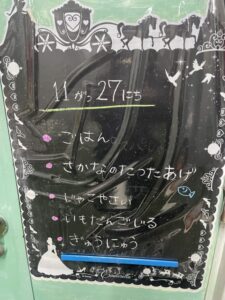 11がつ27にち
ごはん
さかなのたつたあげ
じゃこやさい
いもだんごじる
ぎゅうにゅう